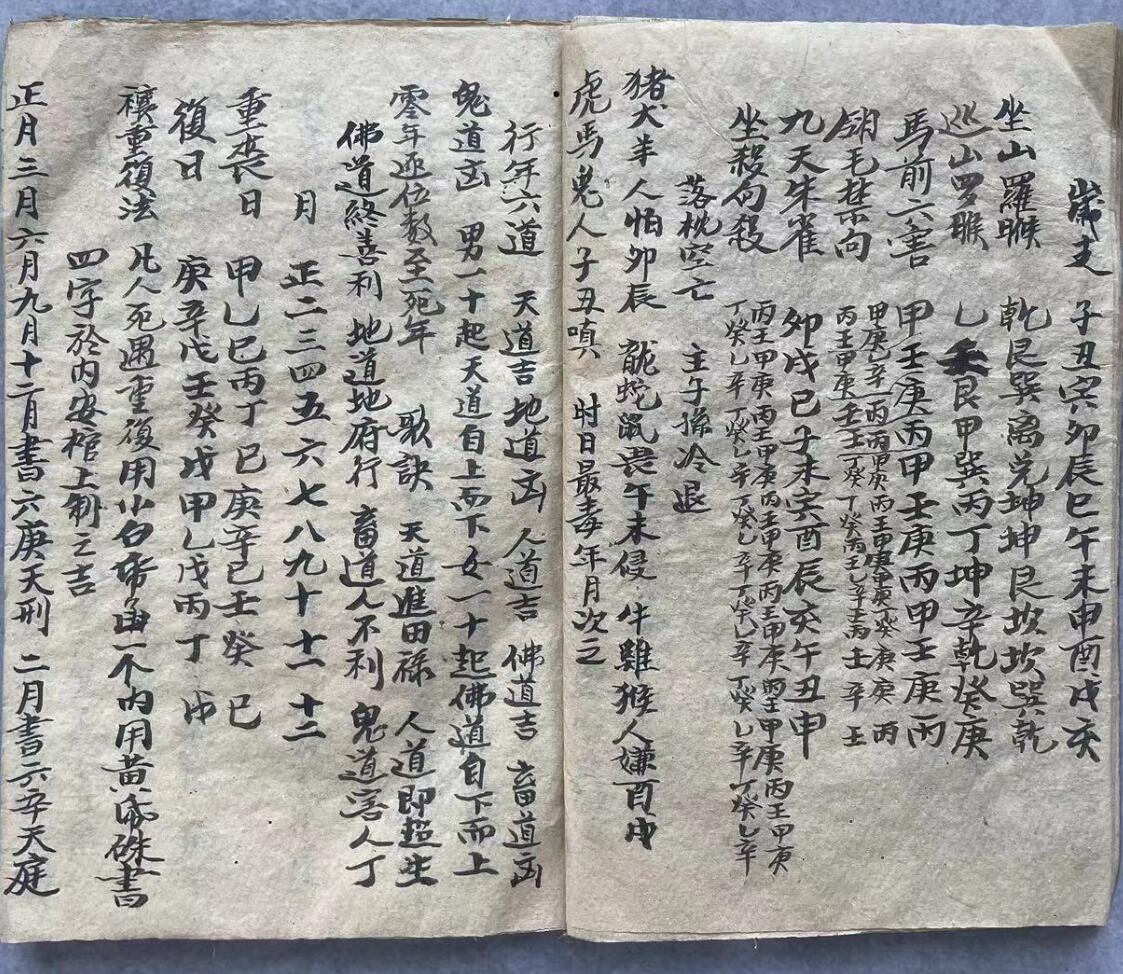 歲支 子丑寅卯辰巳午未申酉戌亥
坐山羅睺 乾艮巽离兑坤坤艮坎坎巽乾
巡山罗睺 乙壬艮甲巽丙丁坤辛乾癸庚
馬前六害 甲壬庚丙甲壬庚丙甲壬庚丙
翎毛禁向
九天朱雀 卯戌巳子未寅酉辰亥午丑申
坐殺向殺
落枕空亡 主子孫冷退
猪犬羊人怕卯辰 龍蛇鼠畏午未侵 牛雞猴人嫌酉戌
虎馬兔人子丑嗔 时日最毒年月次之
行年六道 天道吉地道凶 人道吉 佛道吉 畜道凶
鬼道凶 男一十起天道自上而下女一十起佛道自下而上
零年逐位数至死年 歌訣 天道進田禄 人道即超生
佛道終善利 地道地府行 畜道人不利 鬼道害人丁
月 正二三四五六七八九十十一十二
重丧日 甲乙巳丙丁巳庚辛巳壬癸巳
復日 庚辛戊壬癸戊甲乙戊丙丁戊
禳重復法 凡人死遇重復用小白帋函一个内用黄帋硃書
四字於内安棺上制之吉
正月三月六月九月十二月書六庚天刑 二月書六辛天庭